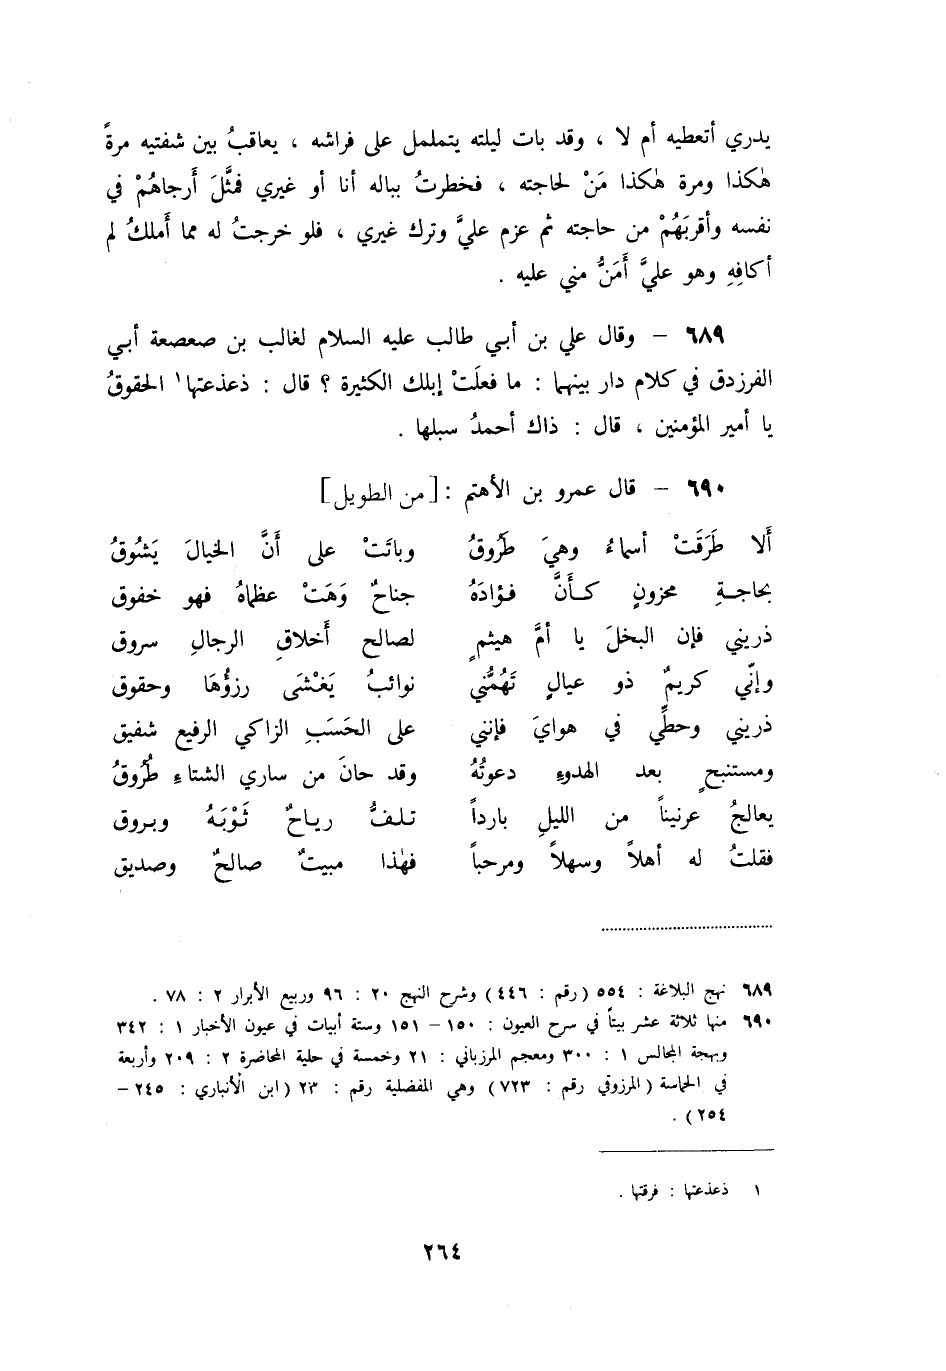 يدري أتعطيه أم لا ، وقد بات ليلته يتململ على فراشه ، يعاقبُ بين شفتيه مرةً
هٰكذا ومرة هٰكذا مَنْ لحاجته ، فخطرتُ بباله أنا أو غيري فمثَّلَ أَرجاهُمْ في
نفسه وأقربَهُمْ من حاجته ثم عزم عليَّ وترك غيري ، فلو خرجتُ له مما أَملكُ لم
أكافِهِ وهو عليَّ أَمَنُّ مني عليه .
٦٨٩ – وقال علي بن أبي طالب عليه السلام لغالب بن صعصعة أبي
الفرزدق في كلام دار بينهما : ما فعلَتْ إبلك الكثيرة ؟ قال : ذعذعتها١ الحقوقُ
يا أمير المؤمنين ، قال : ذاك أحمدُ سبلها .
٦٩٠ – قال عمرو بن الأهتم : [من الطويل]
أَلا طَرَقَتْ أسماءُ وهيَ طَرُوقُ وباتَتْ على أَنَّ الخيالَ يَشُوقُ
بحاجةِ محزونٍ كأَنَّ فؤادَهُ جناحٌ وَهَتْ عظماهُ فهو خفوق
ذريني فإن البخلَ يا أمَّ هيثمٍ لصالح أَخلاقِ الرجالِ سروق
وإنّي كريمٌ ذو عيالٍ تَهُمُّني نوائبُ يَغْشَى رزؤُهَا وحقوق
ذريني وحطِّي في هوايَ فإنني على الحَسَبِ الزاكي الرفيع شفيق
ومستنبحٍ بعد الهدوءِ دعوتُهُ وقد حانَ من ساري الشتاءِ طُرُوقُ
يعالجُ عرنيناً من الليلِ بارداً تلفُّ رياحٌ ثَوْبَهُ وبروق
فقلتُ له أهلاً وسهلاً ومرحباً فهٰذا مبيتٌ صالحٌ وصديق
٦٨٩ نهج البلاغة : ٥٥٤ (رقم : ٤٤٦) وشرح النهج ٢٠ : ٩٦ وربيع الأبرار ٢ : ٧٨ .
٦٩٠ منها ثلاثة عشر بيتاً في سرح العيون : ١٥٠ – ١٥١ وستة أبيات في عيون الأخبار ١ : ٣٤٢
وبهجة المجالس ١ : ٣٠٠ ومعجم المرزباني : ٢١ وخمسة في حلية المحاضرة ٢ : ٢٠٩ وأربعة
في الحماسة (المرزوقي رقم : ٧٢٣) وهي المفضلية رقم : ٢٣ (ابن الأنباري : ٢٤٥ –
٢٥٤) .
١ ذعذعتها : فرقتها .
٢٦٤